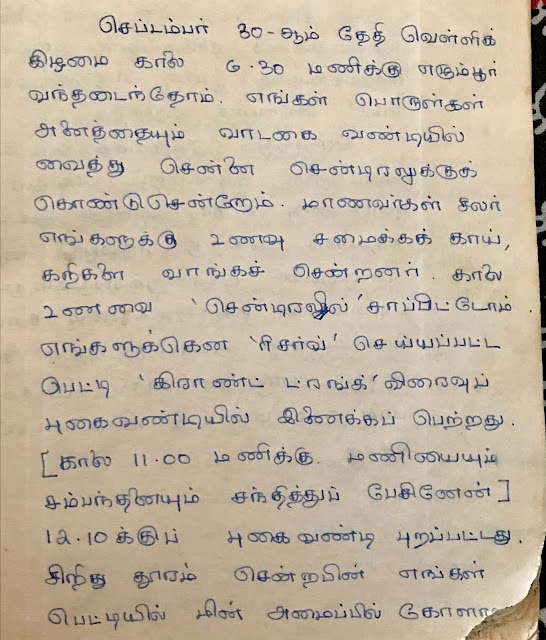 செப்டம்பர் 30-ஆம் தேதி வெள்ளிக்
கிழமை காலை 6.30 மணிக்கு எழும்பூர்
வந்தடைந்தோம். எங்கள் பொருள்கள்
அனைத்தையும் வாடகை வண்டியில்
வைத்து சென்னை சென்டிரலுக்குக்
கொண்டுசென்றோம். மாணவர்கள் சிலர்
எங்களுக்கு உணவு சமைக்கக் காய்,
கறிகளை வாங்கச் சென்றனர். காலை
உணவை 'சென்டிரலில்' சாப்பிட்டோம்.
எங்களுக்கென 'ரிசர்வ்' செய்யப்பட்ட
பெட்டி 'கிராண்ட் ட்ரங்க்' விரைவுப்
புகைவண்டியில் இணைக்கப் பெற்றது.
[காலை 11.00 மணிக்கு. மணியையும்
சம்பந்தனையும் சந்தித்துப் பேசினேன்]
12.10க்குப் புகைவண்டி புறப்பட்டது.
சிறிது தூரம் சென்றபின் எங்கள்
பெட்டியில் மின் அமைப்பில்